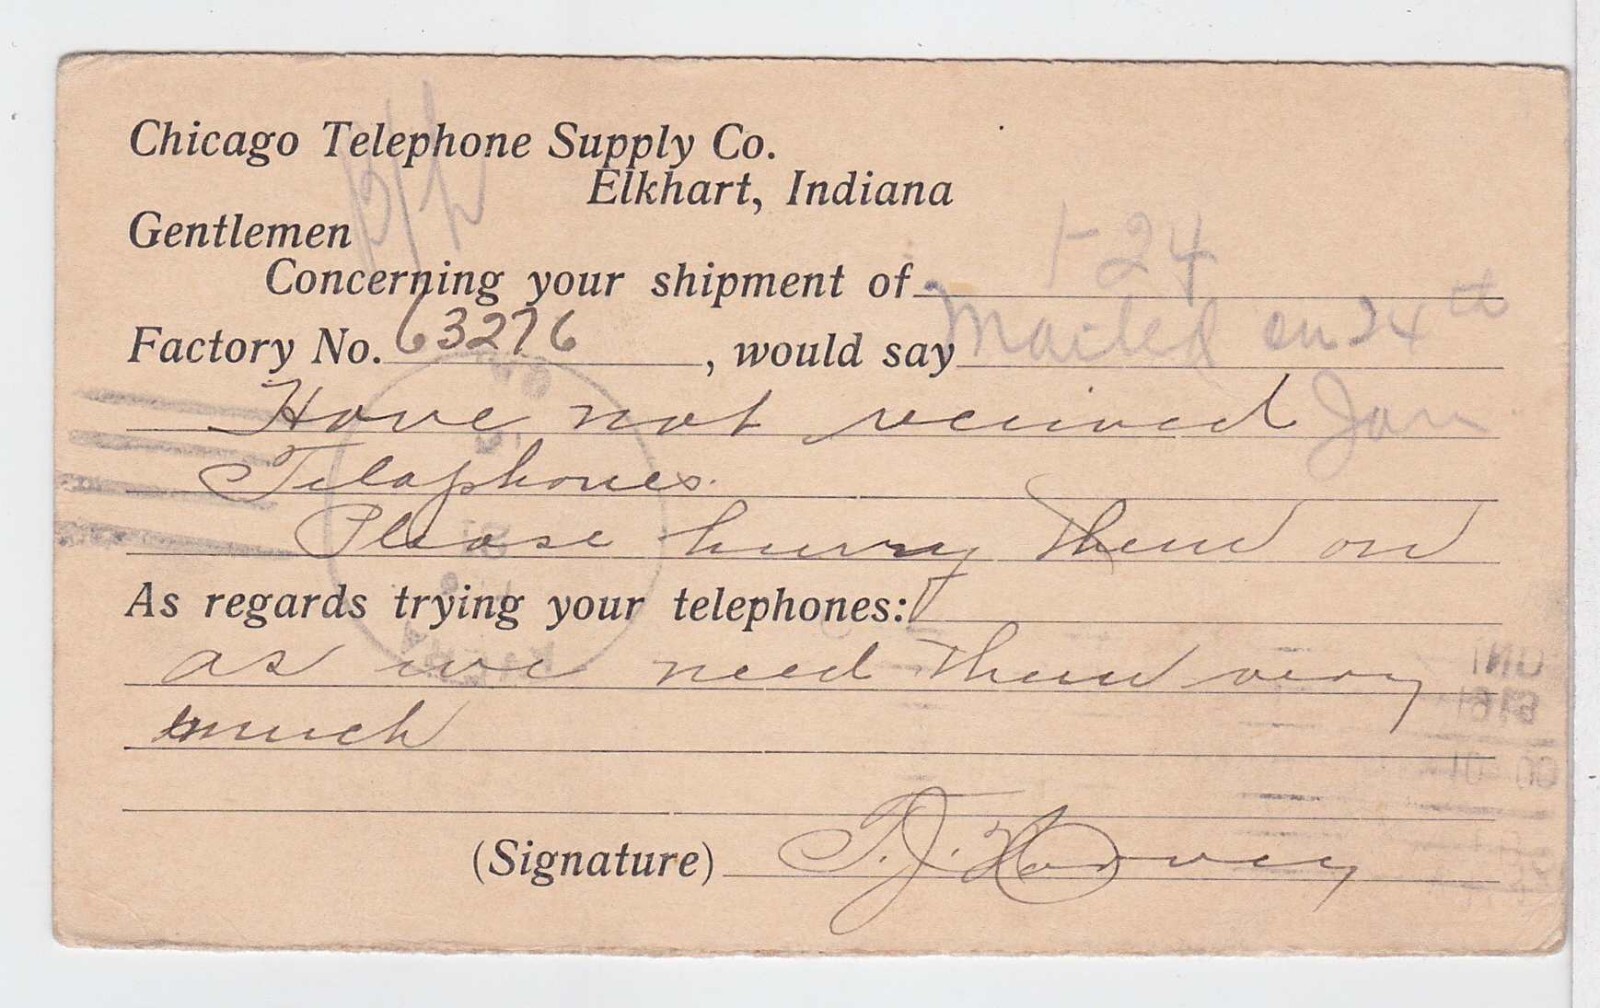 Chicago Telephone Supply Co.
Elkhart, Indiana
Gentlemen
Concerning your shipment of 1-24
Factory No. 63276, would say Mailed on 24th
Have not received Jan
Telaphones.
Please hurry them on
As regards trying your telephones:
as we need them very
much
(Signature) T. J. Harvey